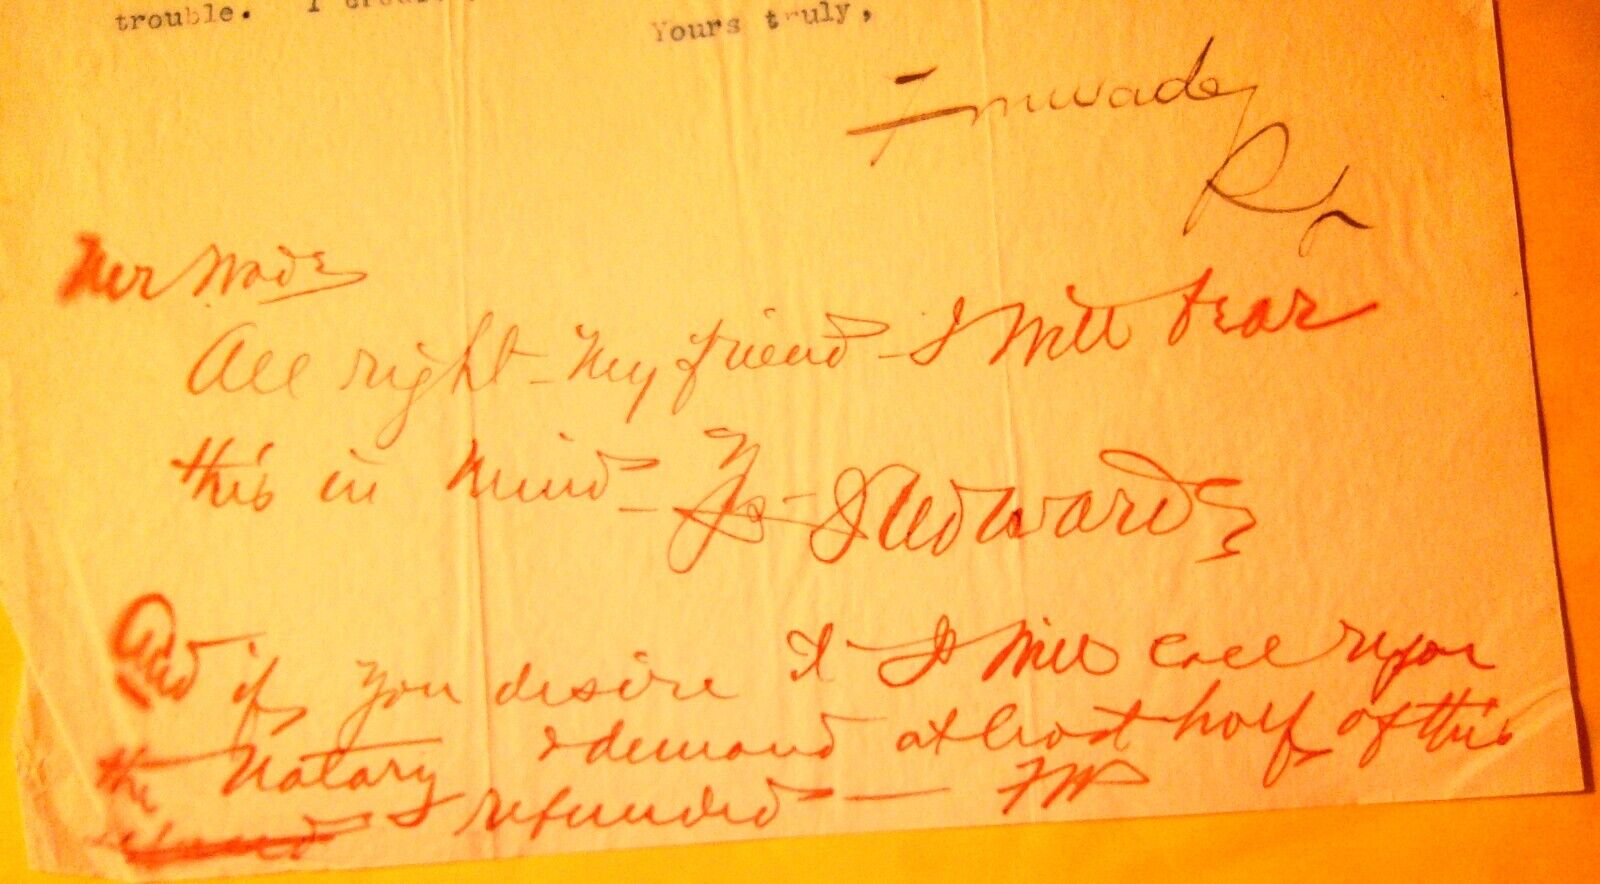 trouble. I
Yours truly,
Fmwade
Mr Wade
All right - My friend - I Will bear
this in Mind - Edwards
And if you desire it I Will call upon
the Notary & demand at least half of this
refunded —